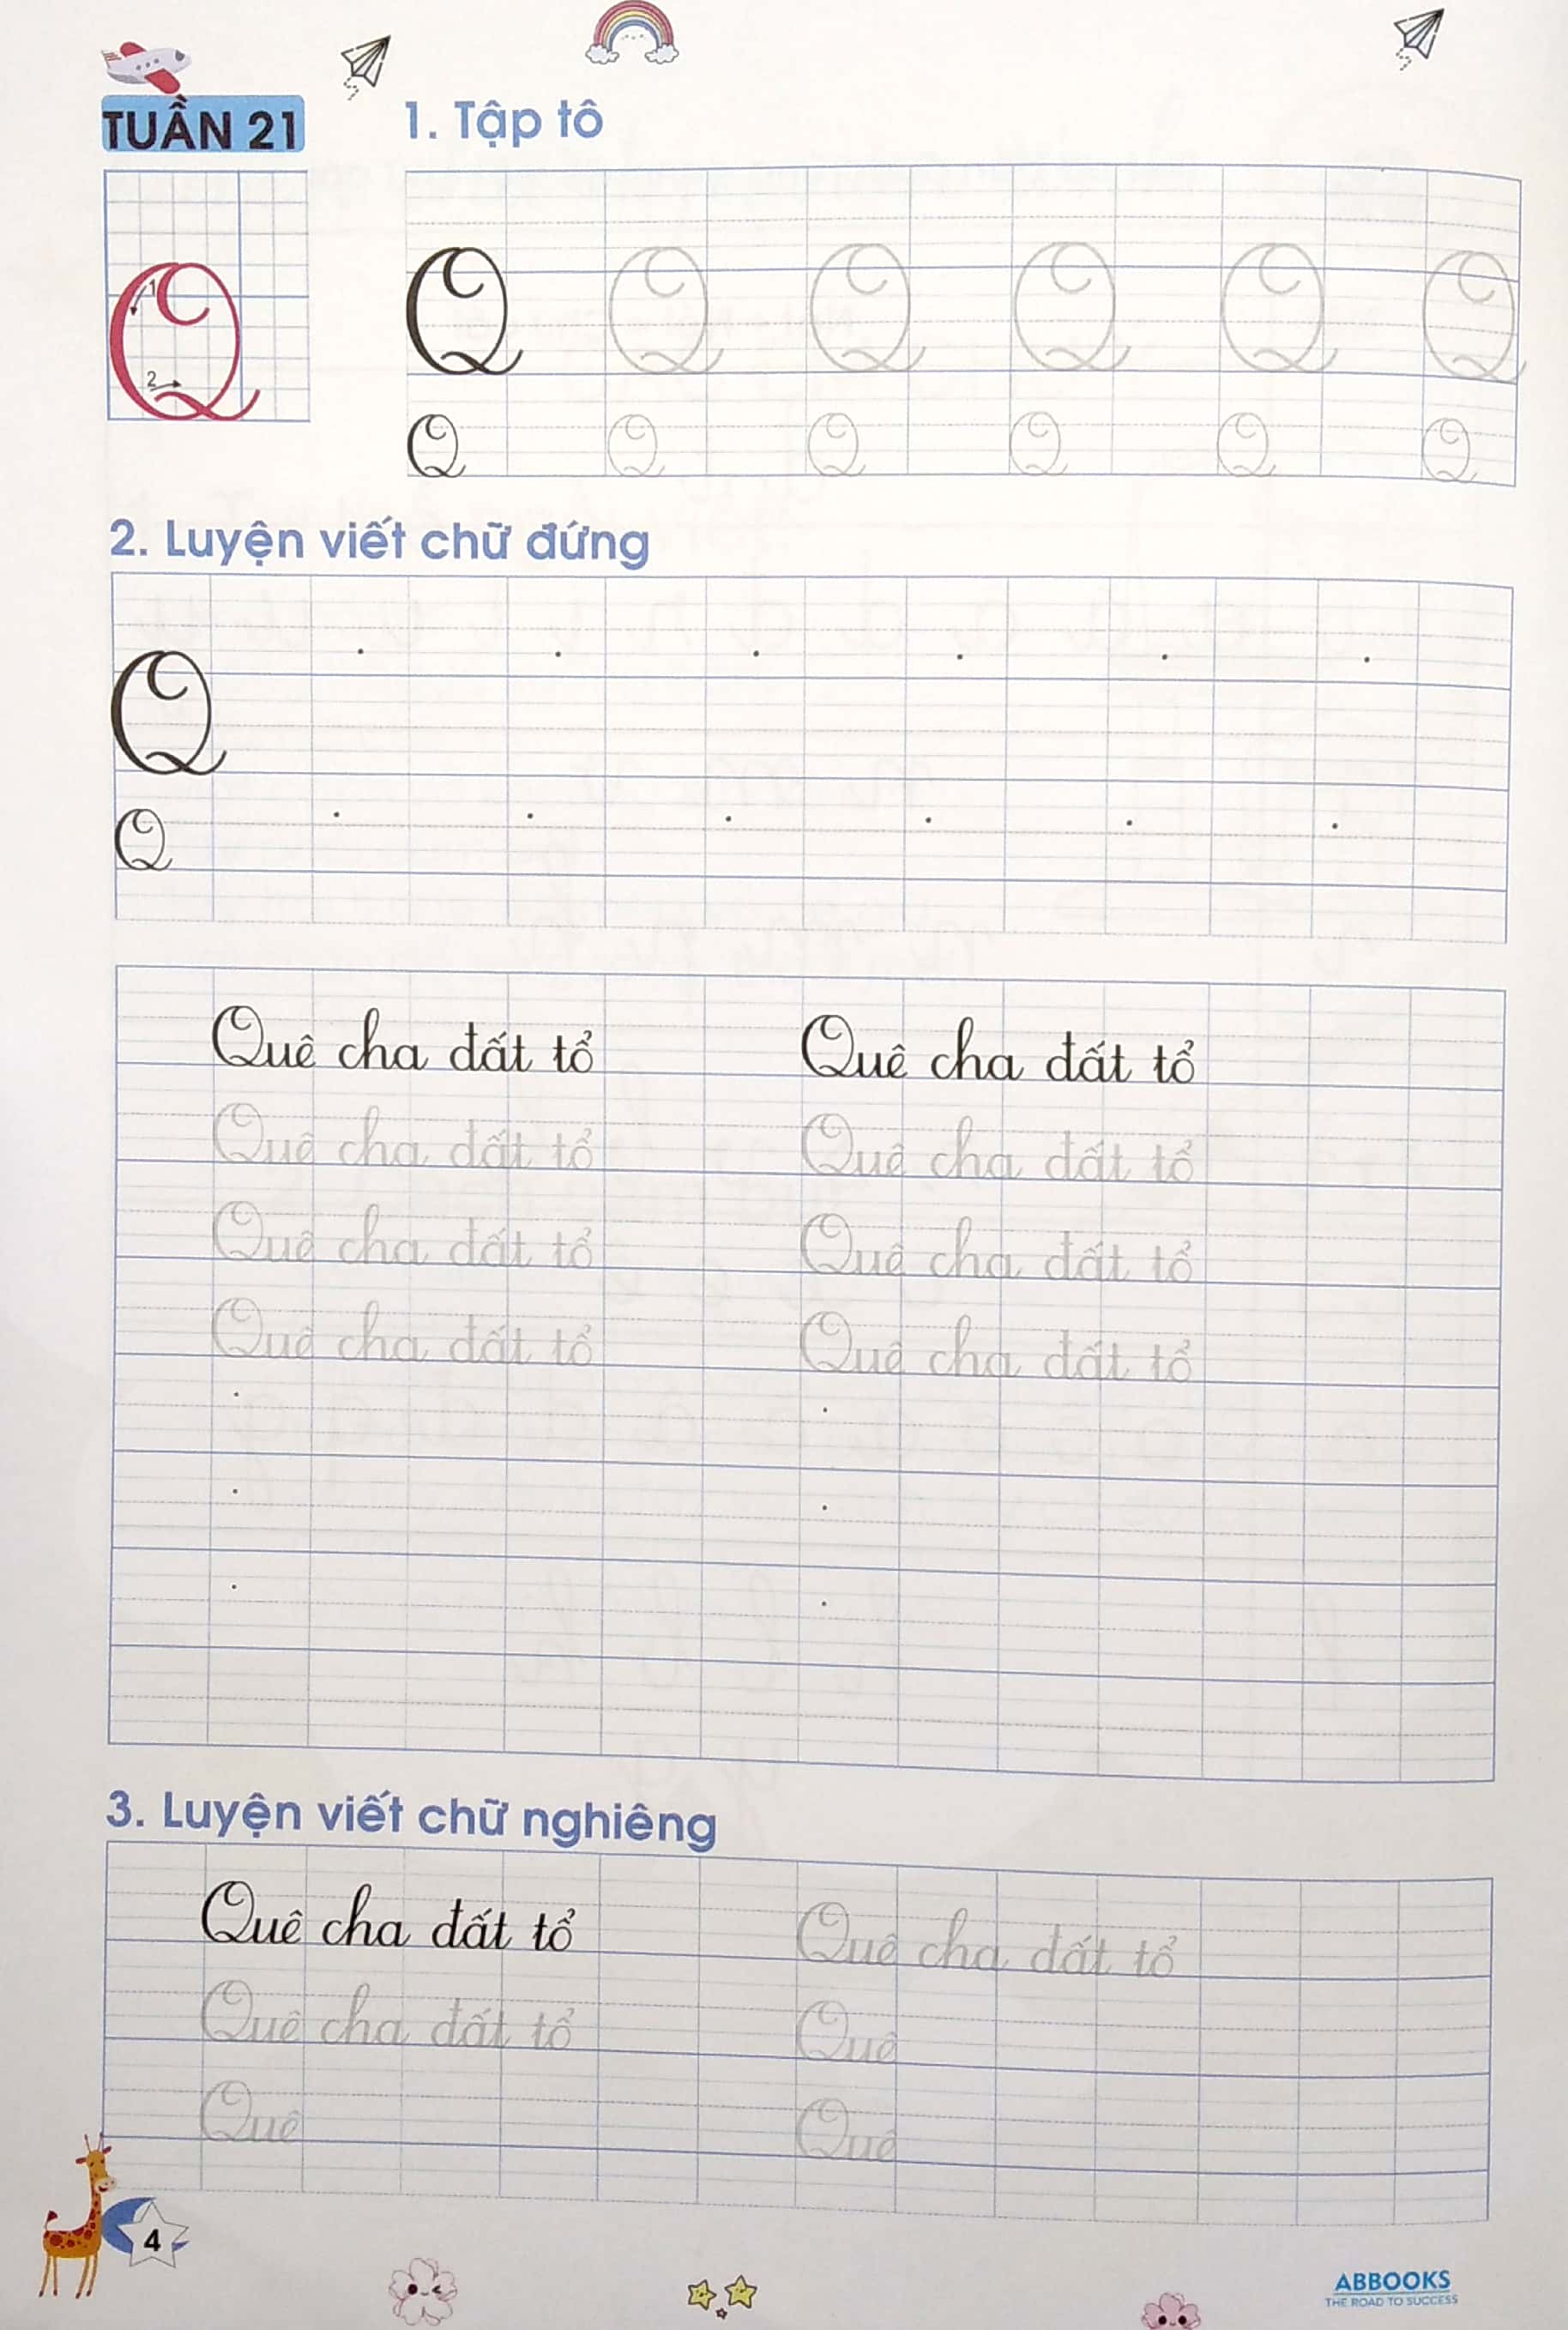 TUẦN 21
1. Tập tô
1
2
Q Q Q Q Q Q
Q Q Q Q Q Q
2. Luyện viết chữ đứng
Q
Q
Quê cha đất tổ Quê cha đất tổ
Quê cha đất tổ Quê cha đất tổ
Quê cha đất tổ Quê cha đất tổ
Quê cha đất tổ Quê cha đất tổ
3. Luyện viết chữ nghiêng
Quê cha đất tổ Quê cha đất tổ
Quê cha đất tổ Quê
Quê Quê
4
ABBOOKS
THE ROAD TO SUCCESS